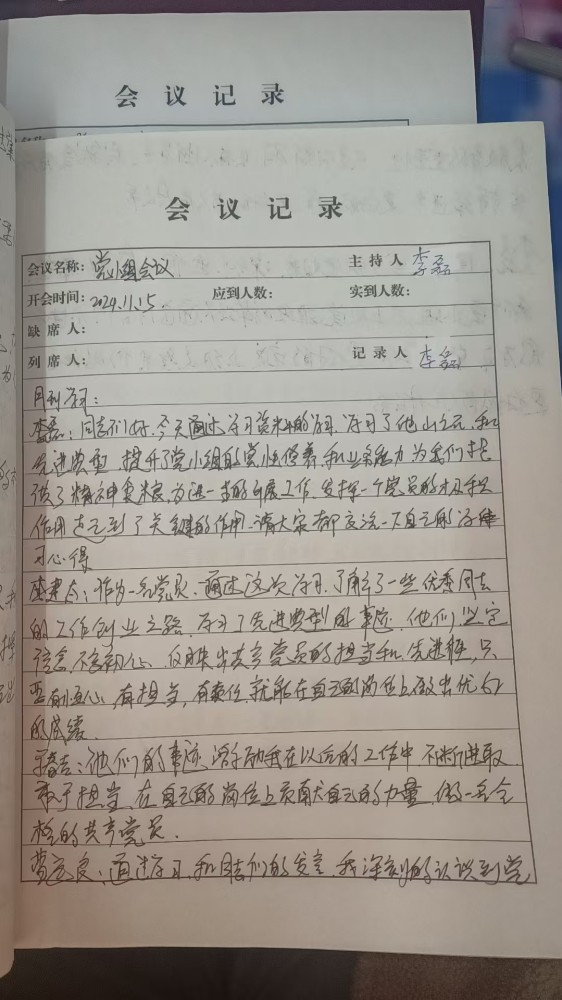 会议记录
会议记录
会议名称: 党小组会议 主持人 李磊
开会时间: 2024.11.15. 应到人数: 实到人数:
缺席人:
列席人: 记录人 李磊
月刊学习:
李磊: 同志们好,今天通过学习资料的学习,学习了他山之石,和
先进典型,提升了党小组的党性修养,和业务能力为我们提
供了精神食粮,为进一步的开展工作,发挥一个党员的积极
作用起到了关键的作用.请大家都交流一下自己的学
习心得
作为一名党员,通过这次学习,了解了一些优秀同志
的工作创业之路,学习了先进典型的事迹,他们坚定
信念,不忘初心,反映出共产党员的担当和先进性,只
要有恒心,有担当,有责任,就能在自己的岗位上做出优
的成绩.
他们的事迹,激励我在以后的工作中,不断进取
敢于担当,在自己的岗位上贡献自己的力量,做一名合
格的共产党员.
通过学习,和同志们的发言,我深刻的认识到党